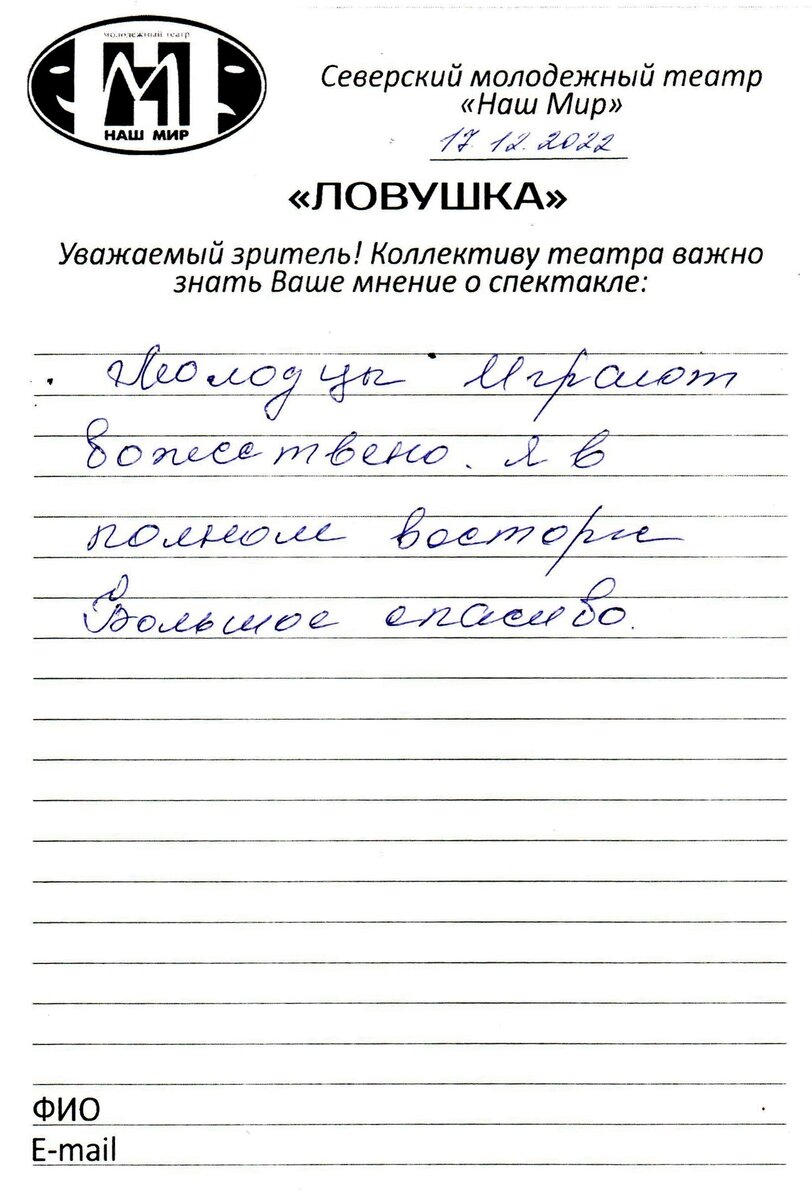 молодежный театр
НАШ МИР
Северский молодежный театр
«Наш Мир»
17.12.2022
«ЛОВУШКА»
Уважаемый зритель! Коллективу театра важно
знать Ваше мнение о спектакле:
Молодцы Играют
божествено. я в
полном восторге
Большое спасибо.
ФИО
E-mail